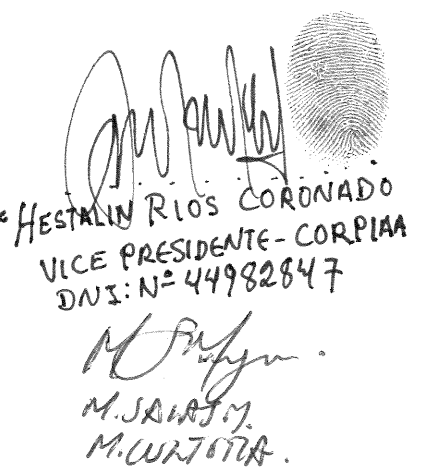 HESTALIN RIOS CORONADO
VICE PRESIDENTE - CORPIAA
DNI: Nº 44982847
M. SALAS M.